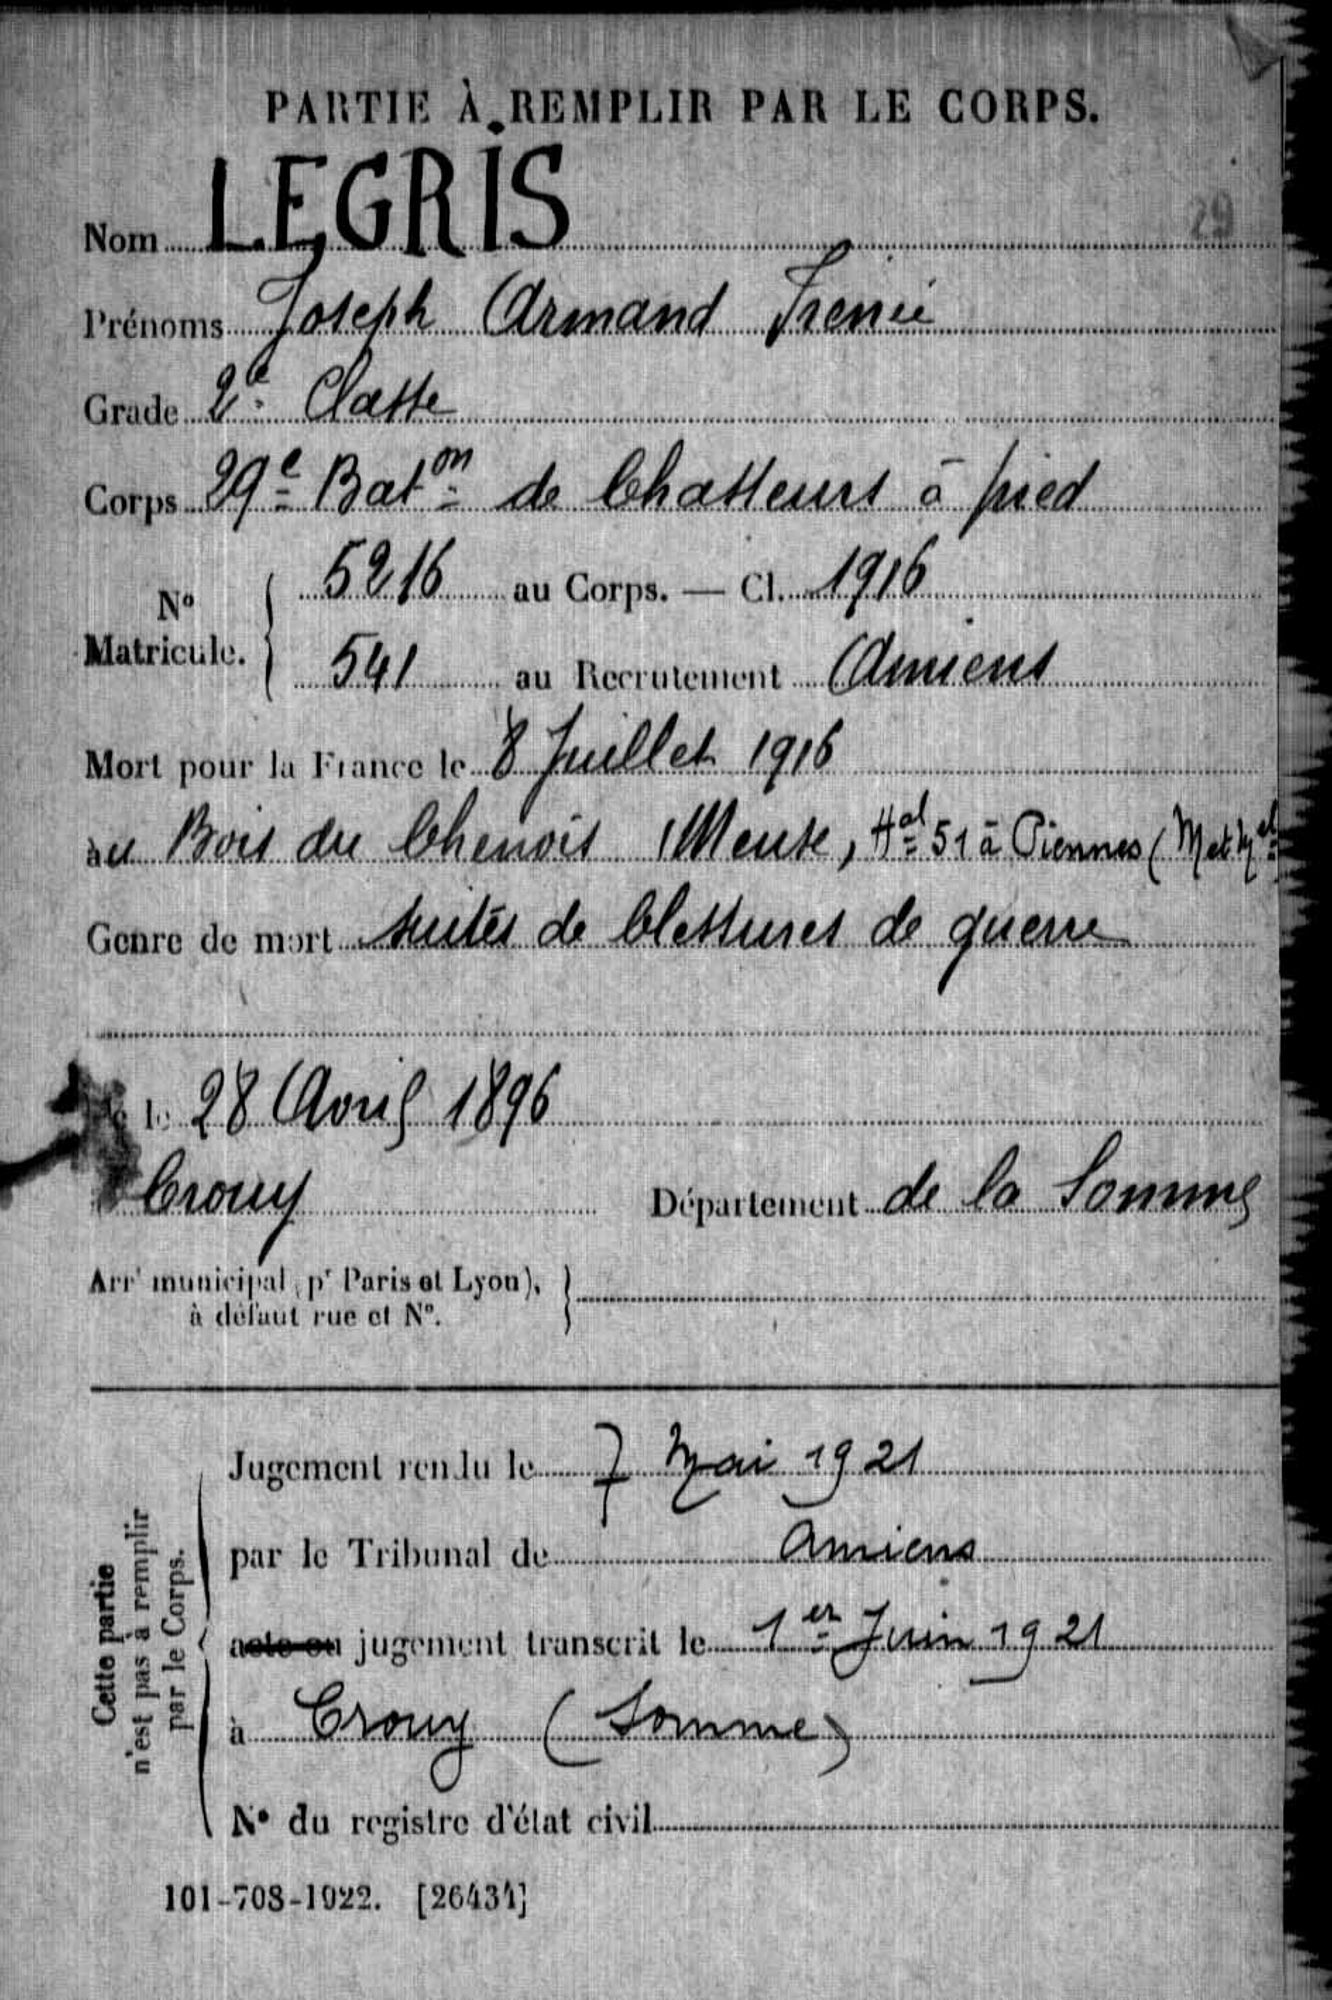 PARTIE À REMPLIR PAR LE CORPS.
29
Nom LEGRIS
Prénoms Joseph Armand Irénée
Grade 2e Classe
Corps 29e Baton de Chasseurs à pied
No Matricule. { 5216 au Corps. — Cl. 1916
541 au Recrutement Amiens
Mort pour la France le 8 Juillet 1916
au Bois du Chenois Meuse, Hal 51 à Piennes (M et Mel
Genre de mort suites de blessures de guerre
le 28 Avril 1896
Crouy Département de la Somme
Arrt municipal (pr Paris et Lyon), à défaut rue et No. }
Cette partie n'est pas à remplir par le Corps.
Jugement rendu le 7 Mai 1921
par le Tribunal de Amiens
acte ou jugement transcrit le 1er Juin 1921
à Crouy (Somme)
No du registre d'état civil
101-708-1922. [26434]